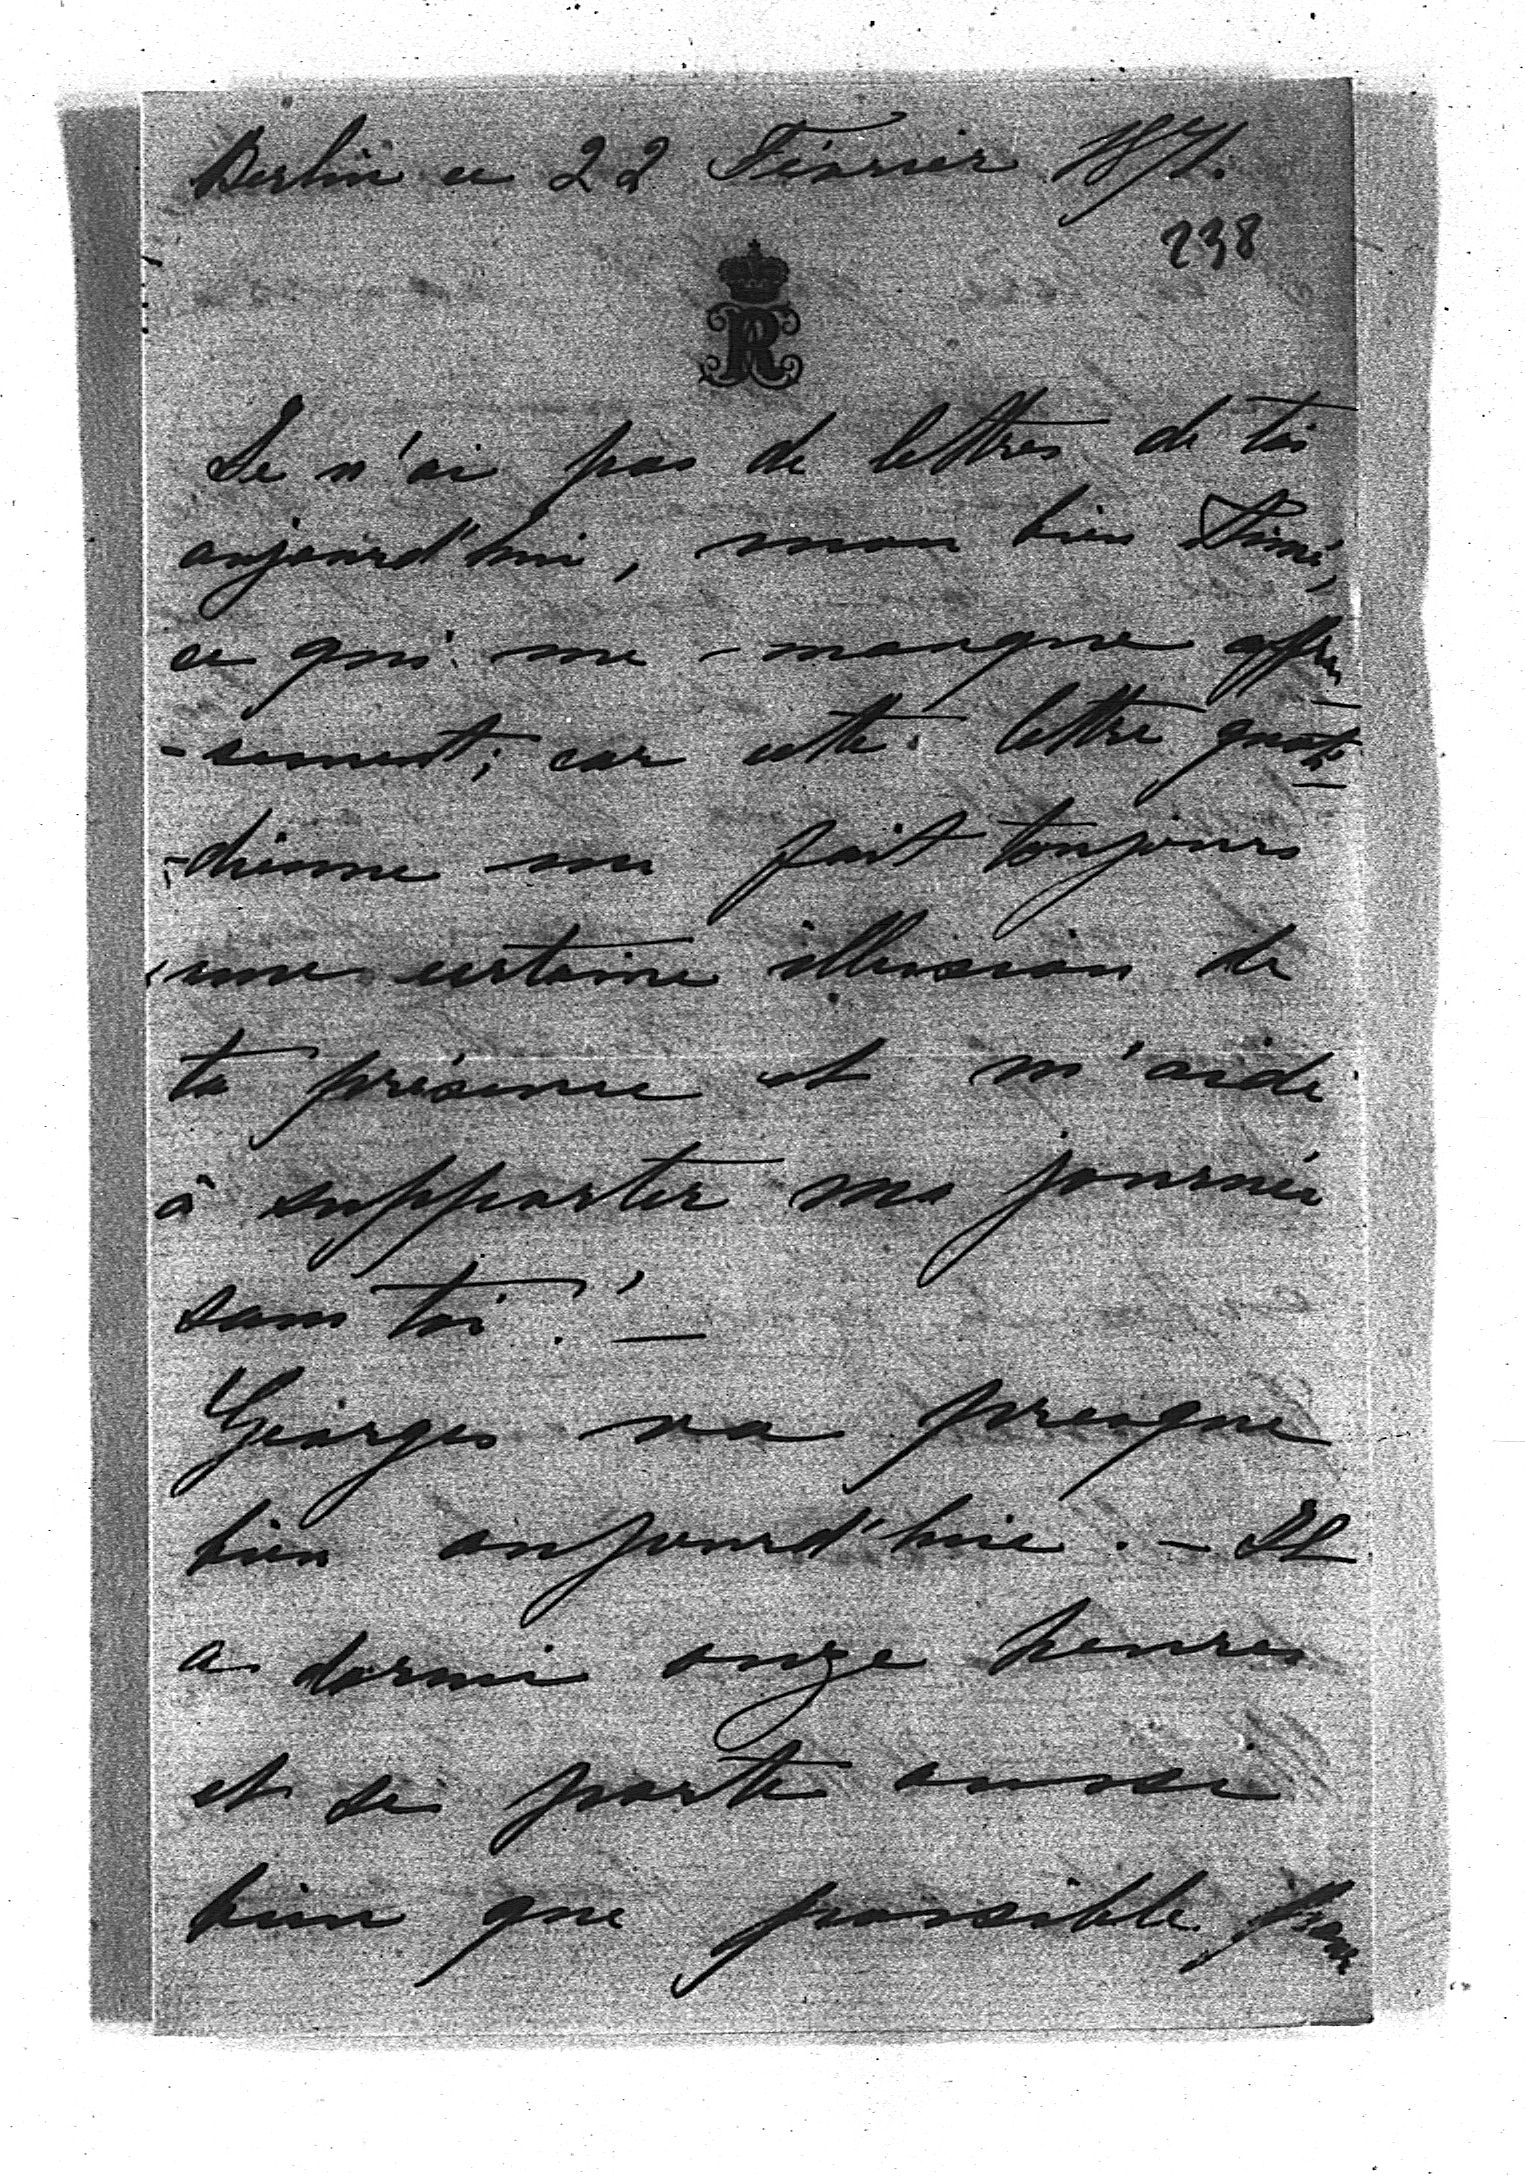 Berlin ce 22 Février 1871.
238
R
Je n'ai pas de lettres de toi
aujourd'hui, mon bien Aimé,
ce qui me manque affreu
-sement; car cette lettre quoti
-dienne me fait toujours
une certaine illusion de
ta présence et m'aide
à supporter ma journée
sans toi! —
Georges va presque
bien aujourd'hui. — Il
a dormi onze heures
et se porte aussi
bien que possible pour